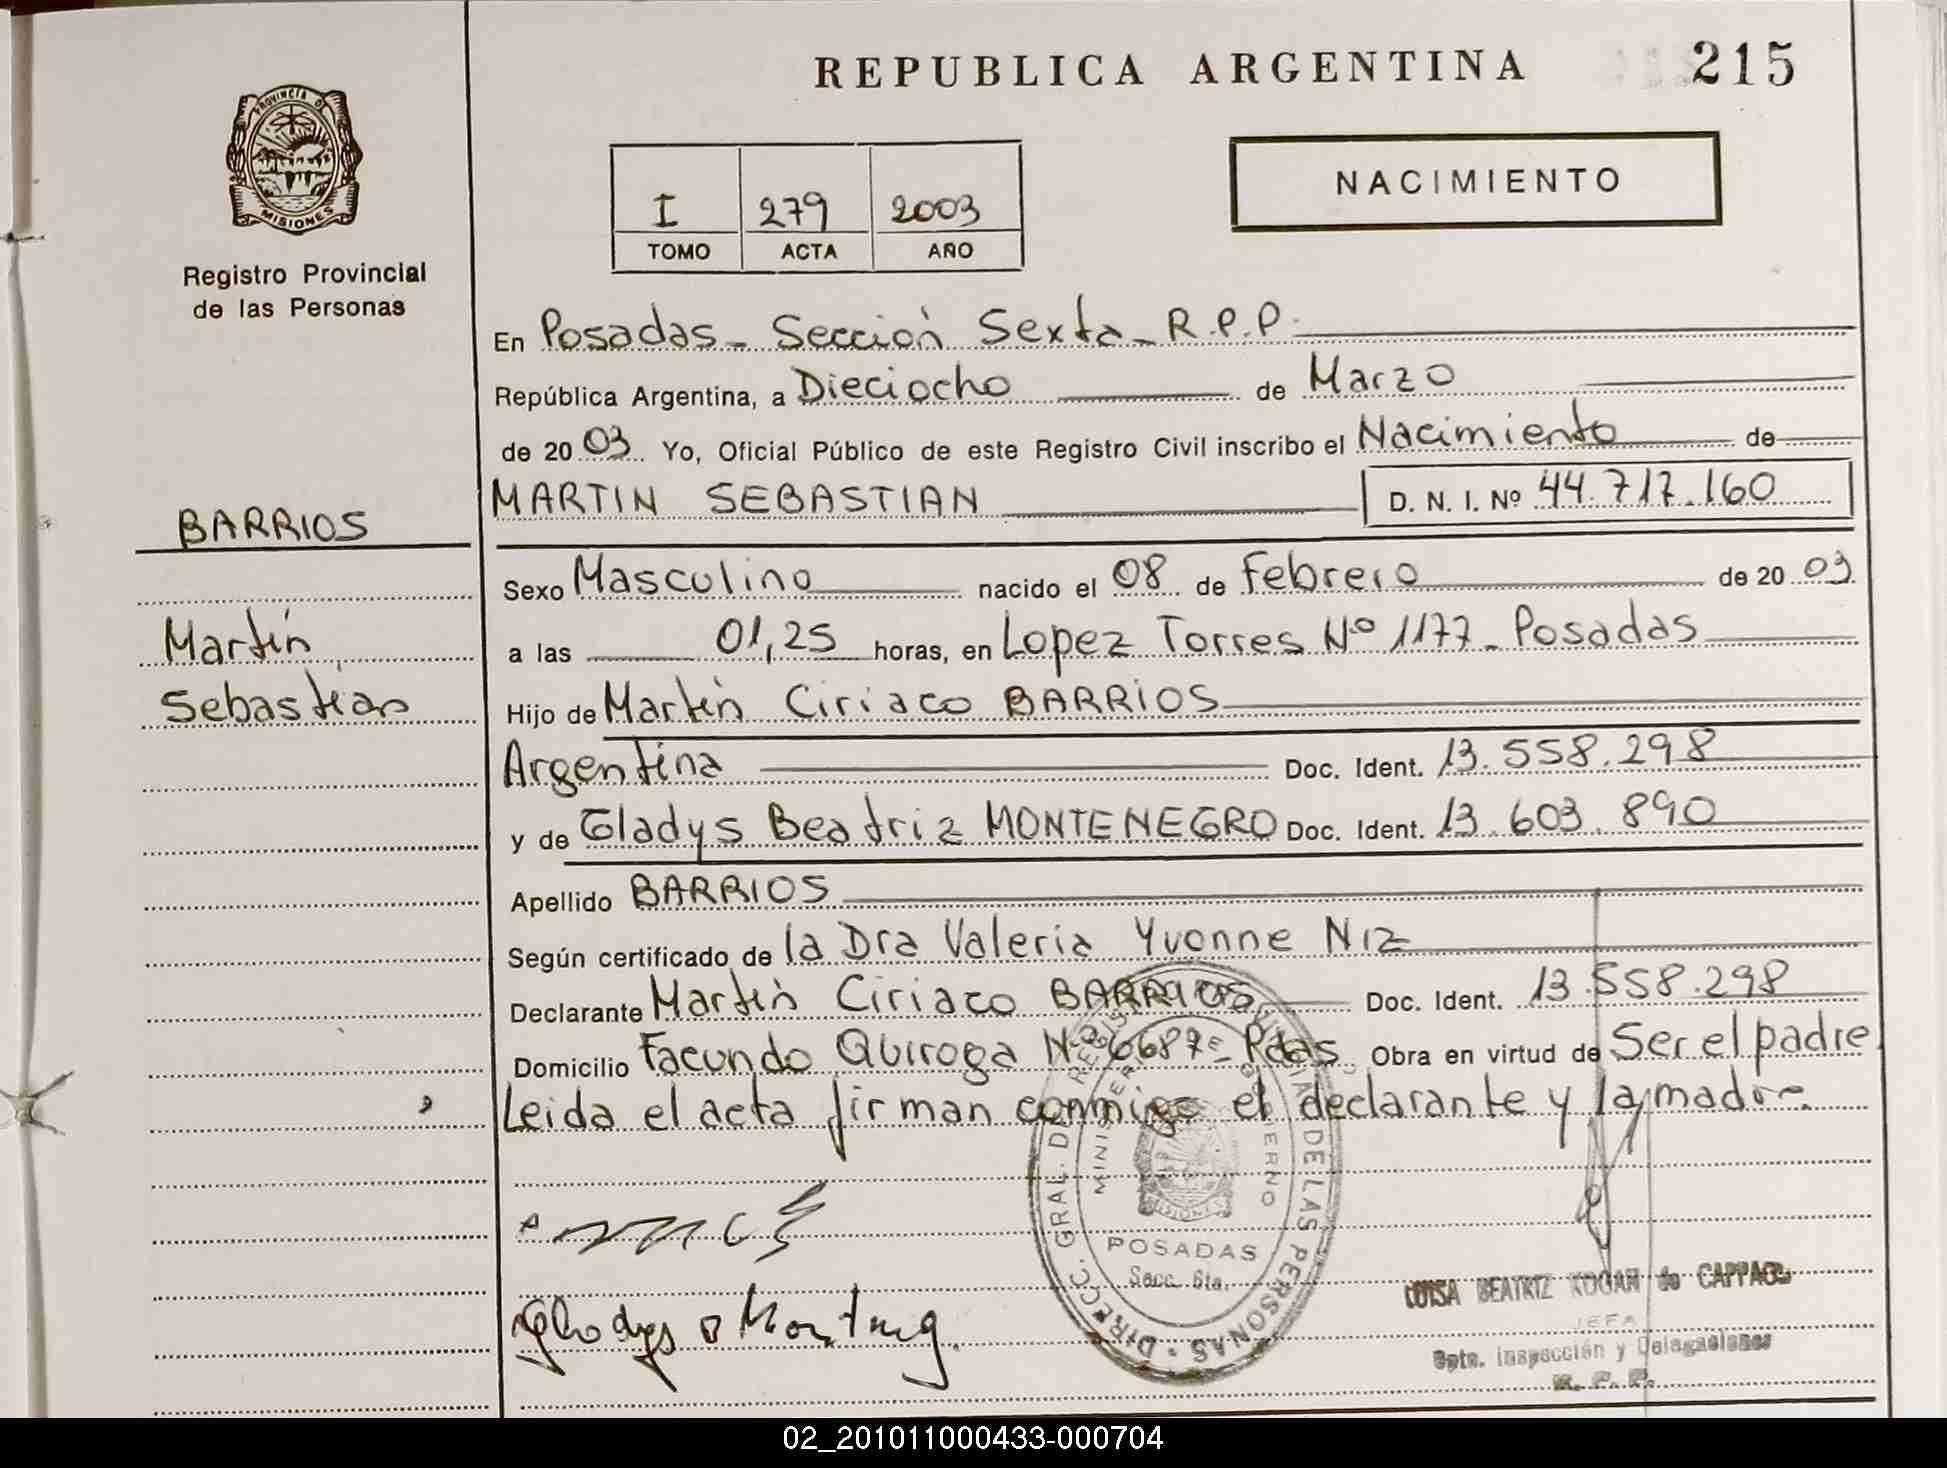 REPUBLICA ARGENTINA
215
PROVINCIA DE
MISIONES
Registro Provincial
de las Personas
I 279 2003
TOMO ACTA AÑO
NACIMIENTO
En Posadas - Sección Sexta - R.P.P.
República Argentina, a Dieciocho de Marzo
de 20 03. Yo, Oficial Público de este Registro Civil inscribo el Nacimiento de
MARTIN SEBASTIAN D. N. I. Nº 44.717.160
BARRIOS
Martín
Sebastián
Sexo Masculino nacido el 08 de Febrero de 20 03.
a las 01,25 horas, en Lopez Torres Nº 1177 - Posadas
Hijo de Martín Ciriaco BARRIOS
Argentina Doc. Ident. 13.558.298
y de Gladys Beatriz MONTENEGRO Doc. Ident. 13.603.890
Apellido BARRIOS
Según certificado de la Dra Valeria Yvonne Niz
Declarante Martín Ciriaco BARRIOS Doc. Ident. 13.558.298
Domicilio Facundo Quiroga Nº Pdas. Obra en virtud de Ser el padre
Leida el acta firman conmigo el declarante y la madre.
DIRECC. GRAL. DE LAS PERSONAS
POSADAS
Secc. 6ta.
LUISA BEATRIZ KOGAN de
JEFA
Dpto. Inspección y Delegaciones
R. P. P.
02_201011000433-000704